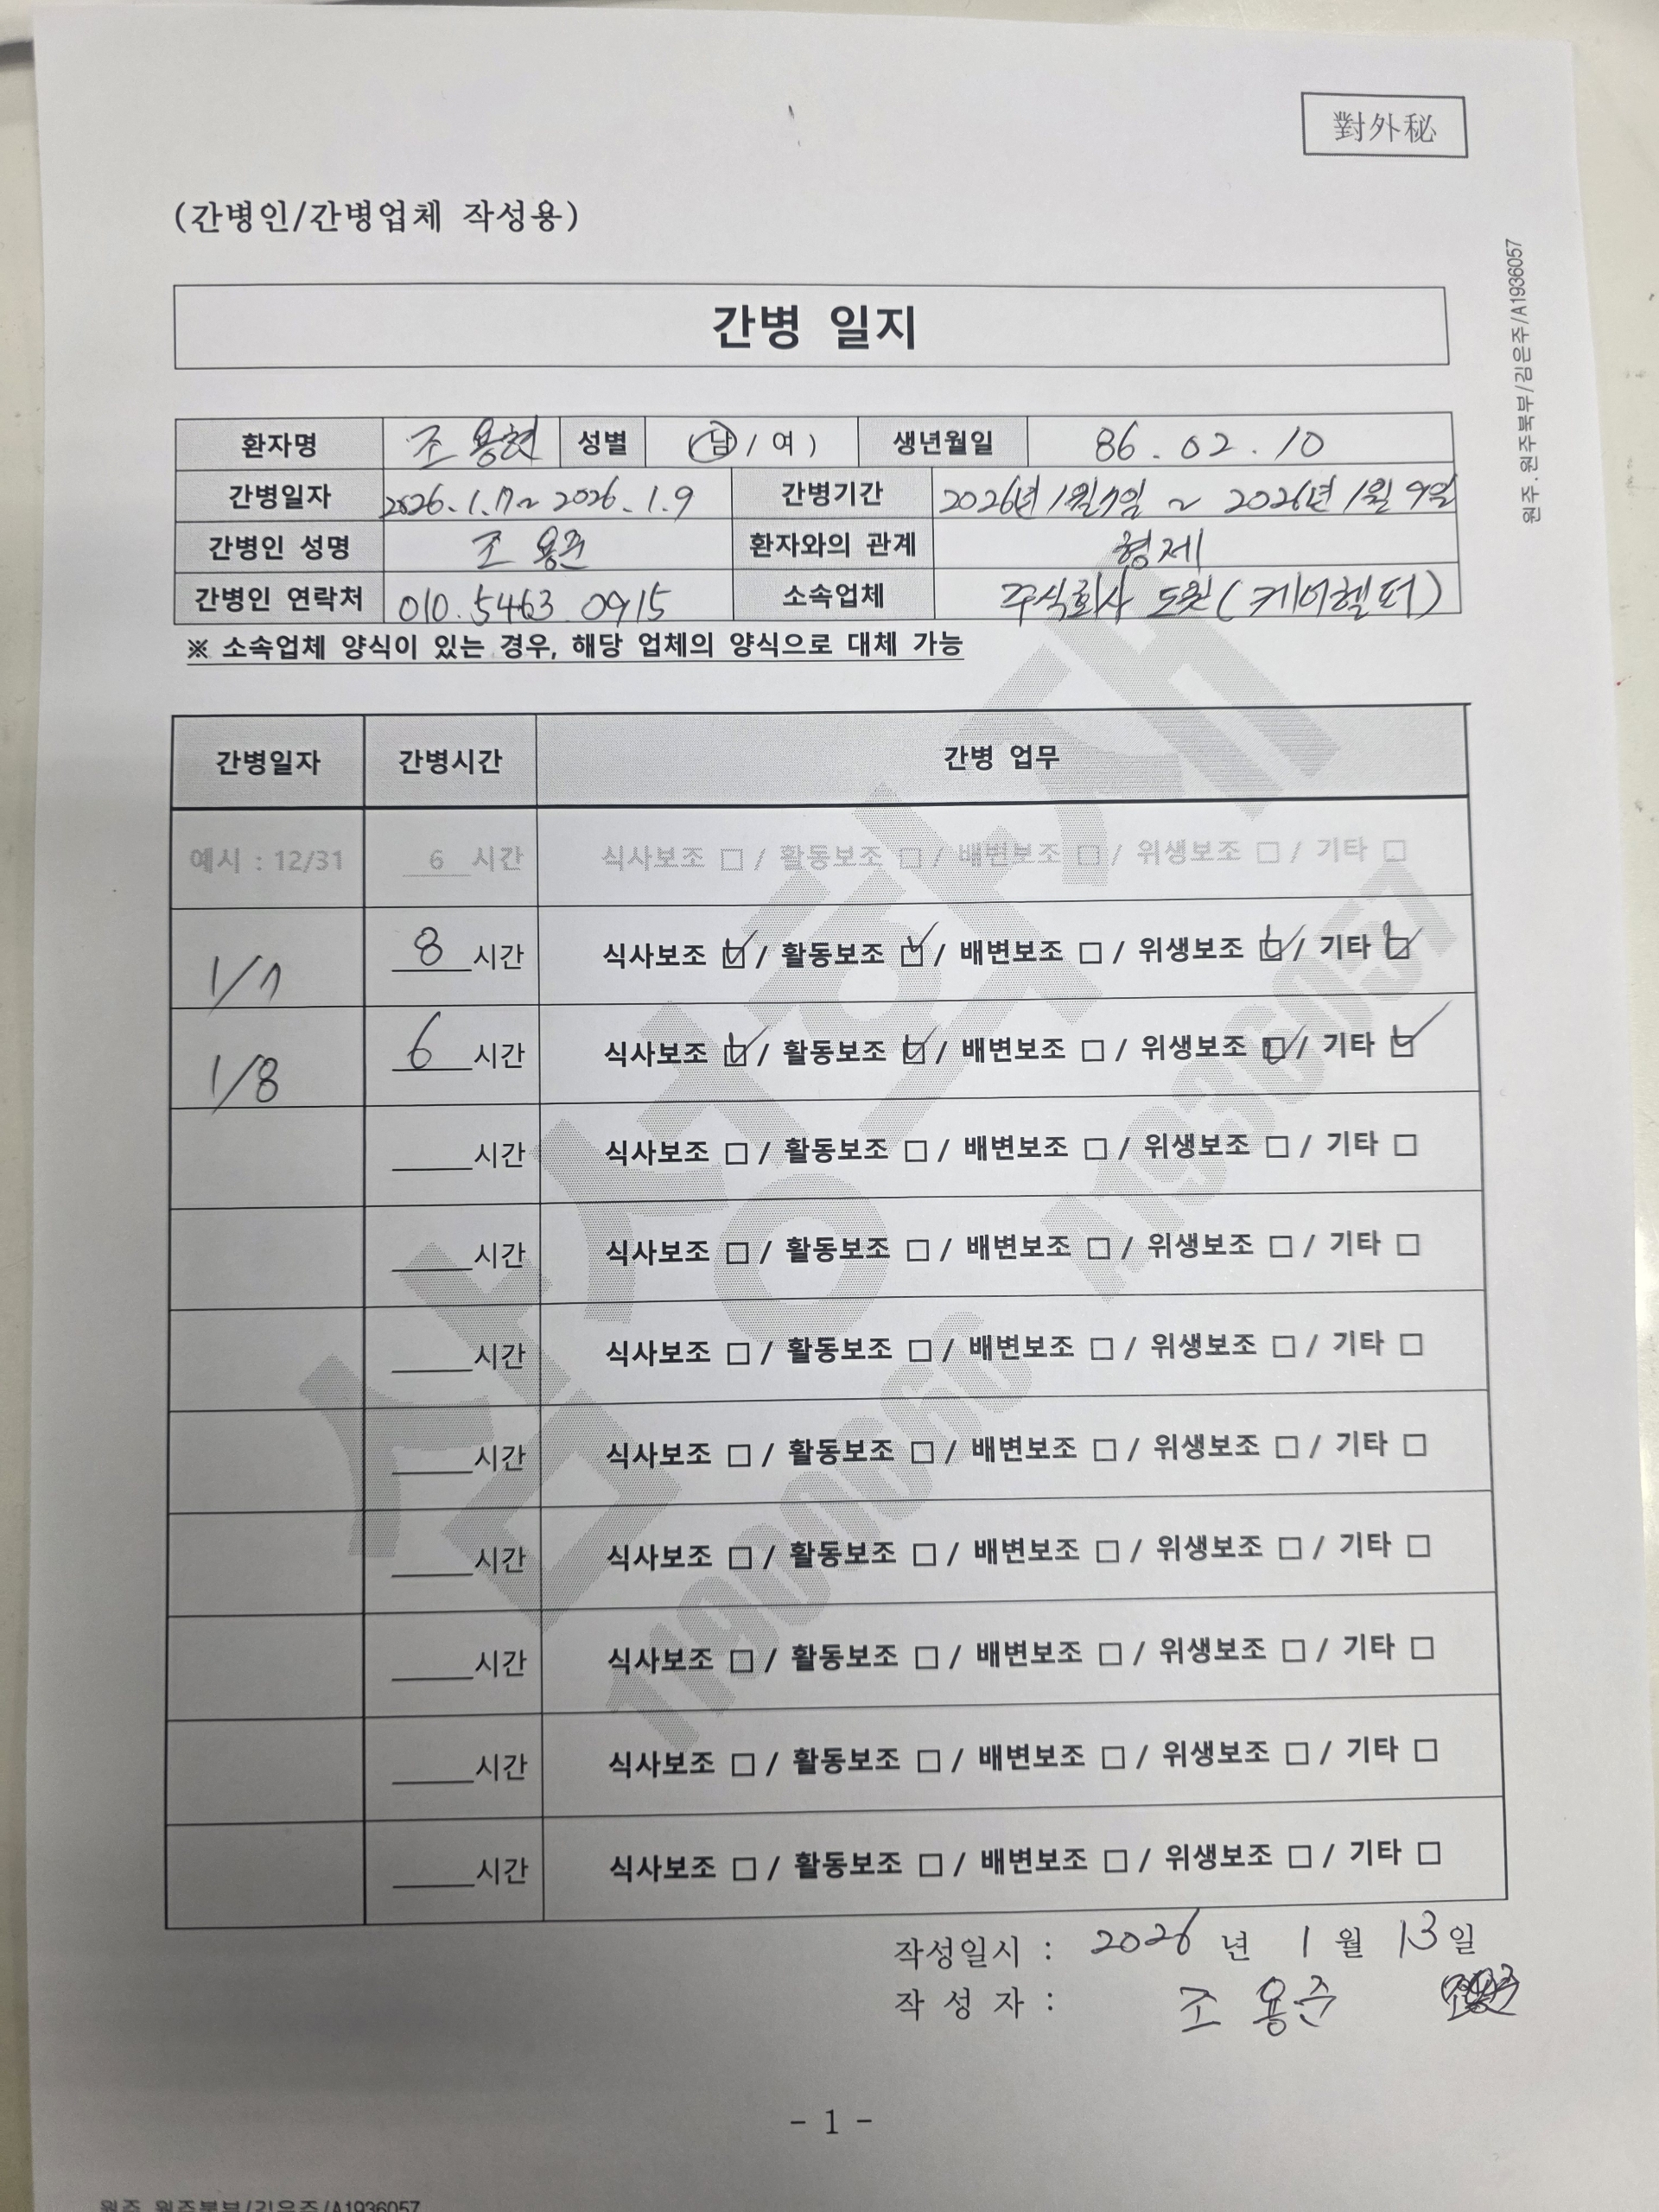 對外秘
(간병인/간병업체 작성용)
원주.원주북부/김은주/A1936057
간병 일지
환자명 조용현 성별 (남/여) 생년월일 86.02.10
간병일자 2026.1.7~2026.1.9 간병기간 2026년 1월 7일 ~ 2026년 1월 9일
간병인 성명 조용준 환자와의 관계 형제
간병인 연락처 010.5463.0915 소속업체 주식회사 도원(케어헬퍼)
※ 소속업체 양식이 있는 경우, 해당 업체의 양식으로 대체 가능
간병일자 간병시간 간병 업무
예시 : 12/31 6 시간 식사보조 □ / 활동보조 □ / 배변보조 □ / 위생보조 □ / 기타 □
1/7 8 시간 식사보조 ☑ / 활동보조 ☑ / 배변보조 □ / 위생보조 ☑ / 기타 ☑
1/8 6 시간 식사보조 ☑ / 활동보조 ☑ / 배변보조 □ / 위생보조 ☑ / 기타 ☑
시간 식사보조 □ / 활동보조 □ / 배변보조 □ / 위생보조 □ / 기타 □
시간 식사보조 □ / 활동보조 □ / 배변보조 □ / 위생보조 □ / 기타 □
시간 식사보조 □ / 활동보조 □ / 배변보조 □ / 위생보조 □ / 기타 □
시간 식사보조 □ / 활동보조 □ / 배변보조 □ / 위생보조 □ / 기타 □
시간 식사보조 □ / 활동보조 □ / 배변보조 □ / 위생보조 □ / 기타 □
시간 식사보조 □ / 활동보조 □ / 배변보조 □ / 위생보조 □ / 기타 □
시간 식사보조 □ / 활동보조 □ / 배변보조 □ / 위생보조 □ / 기타 □
시간 식사보조 □ / 활동보조 □ / 배변보조 □ / 위생보조 □ / 기타 □
삼성화재
A1936057
작성일시 : 2026 년 1 월 13 일
작 성 자 : 조용준
- 1 -
원주.원주북부/김은주/A1936057